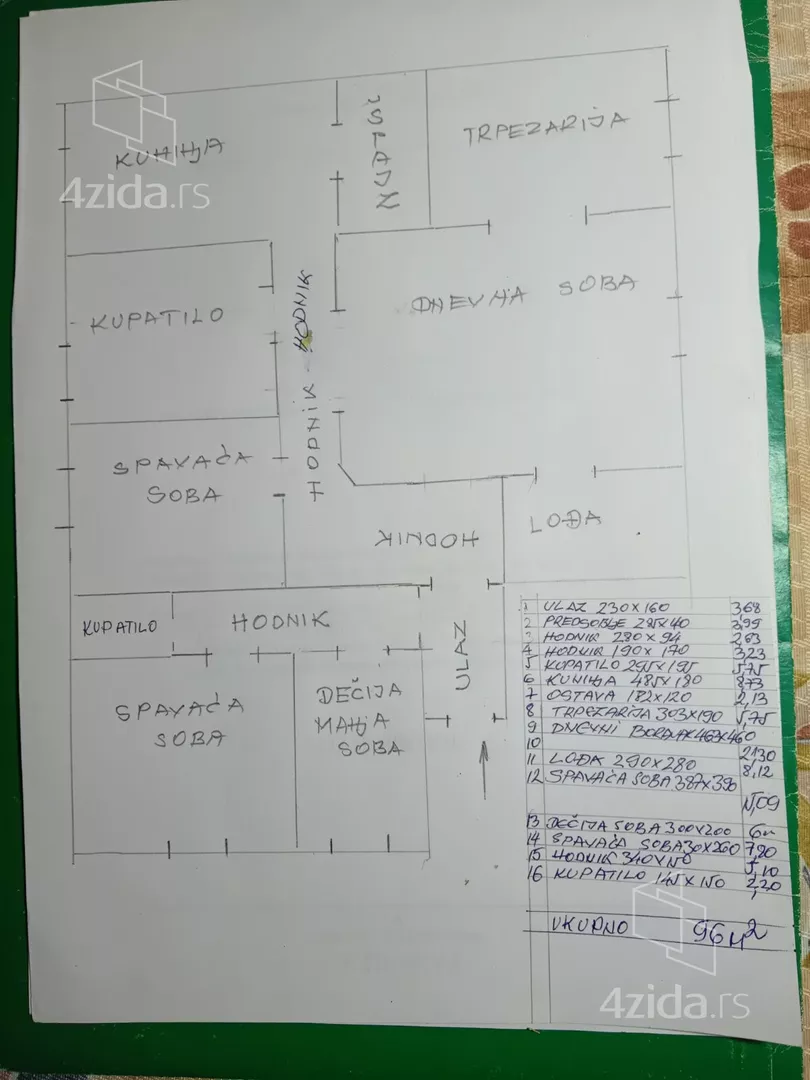 KUHINJA
ŠPAJZ
TRPEZARIJA
4zida.rs
KUPATILO
HODNIK - HODNIK
DNEVNA SOBA
SPAVAĆA
SOBA
HODNIK
LOĐA
KUPATILO
HODNIK
ULAZ
SPAVAĆA
SOBA
DEČIJA
MANJA
SOBA
1 ULAZ 230 x 160 3,68
2 PREDSOBLJE 285 x 140 3,99
3 HODNIK 280 x 94 2,63
4 HODNIK 190 x 170 3,23
5 KUPATILO 295 x 195 5,75
6 KUHINJA 485 x 180 8,73
7 OSTAVA 182 x 120 2,13
8 TRPEZARIJA 303 x 190 5,75
9 DNEVNI BORAVAK 463 x 460
10 21,30
11 LOĐA 290 x 280 8,12
12 SPAVAĆA SOBA 387 x 390
15,09
13 DEČIJA SOBA 300 x 200 6m
14 SPAVAĆA SOBA 30 x 260 7,80
15 HODNIK 340 x 150 5,10
16 KUPATILO 145 x 150 2,20
UKUPNO 96 m2
4zida.rs